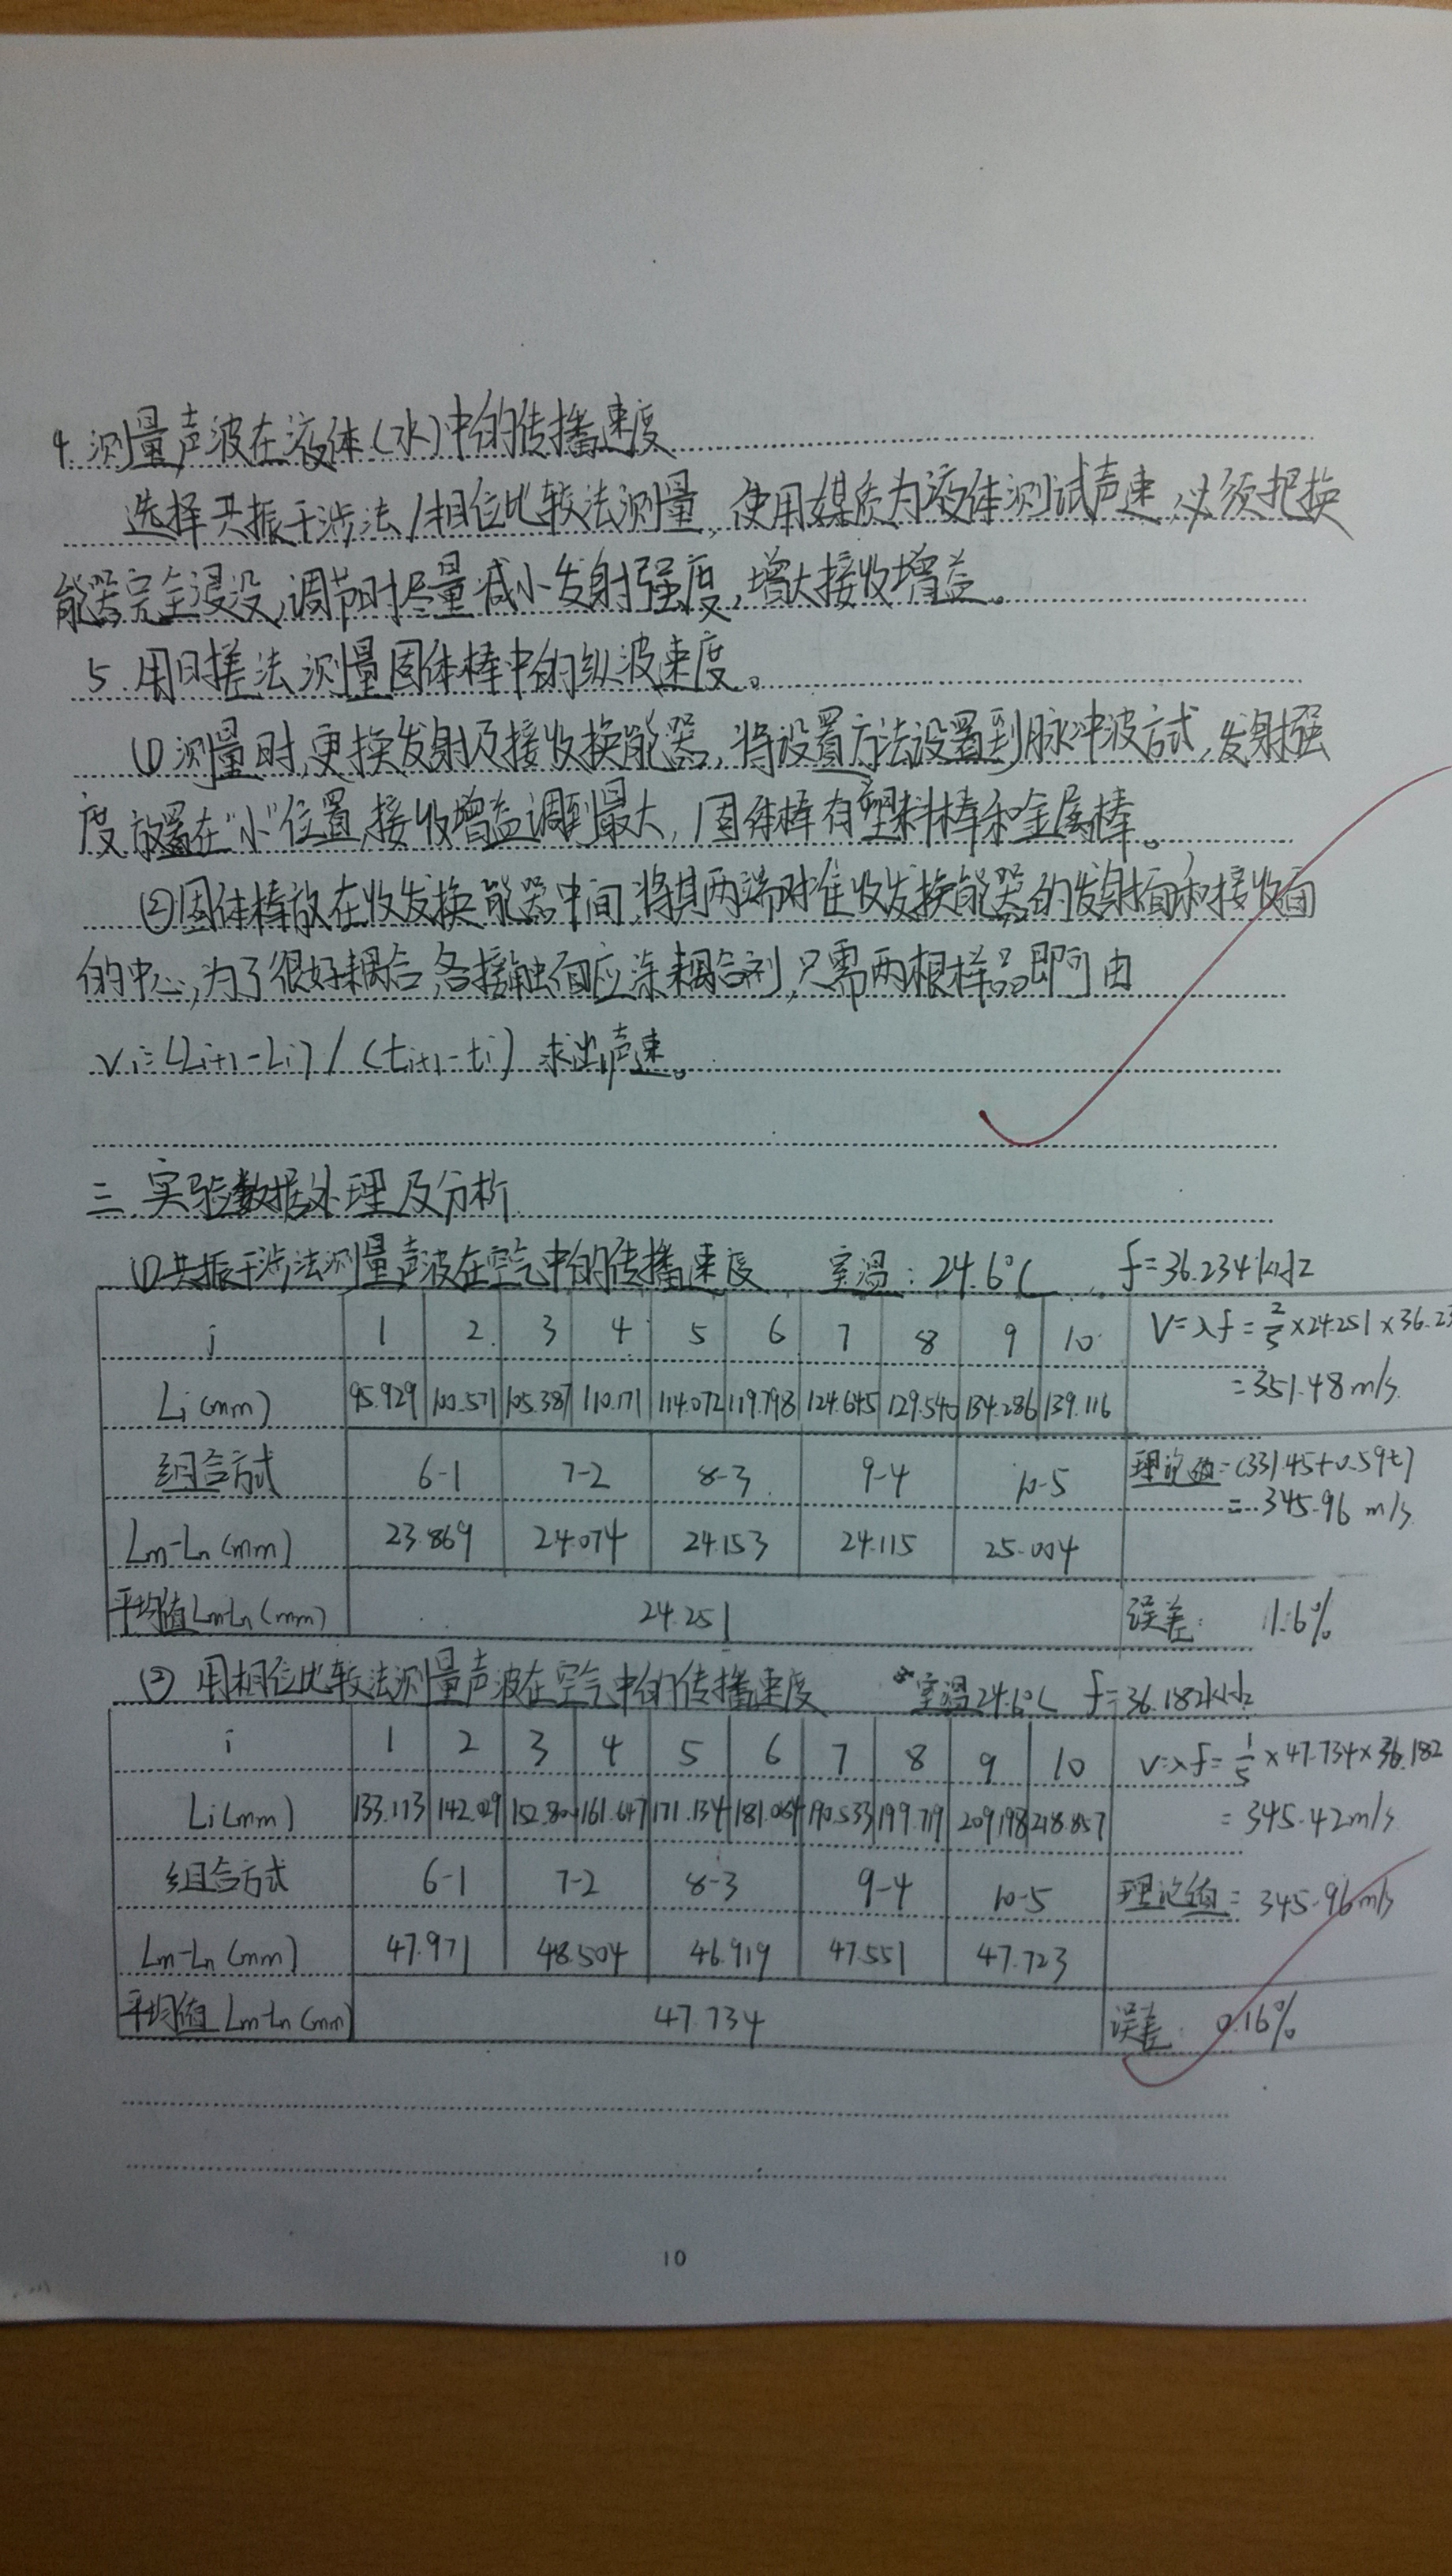 4. 测量声波在液体(水)中的传播速度
选择共振干涉法/相位比较法测量,使用媒质为液体测试声速,必须把换
能器完全浸没,调节时尽量减小发射强度,增大接收增益。
5. 用时差法测量固体棒中的纵波速度。
(1)测量时,更换发射及接收换能器,将设置方法设置到脉冲波方式,发射强
度放置在“小”位置,接收增益调到最大,固体棒有塑料棒和金属棒。
(2)固体棒放在收发换能器中间,将其两端对准收发换能器的发射面和接收面
的中心,为了很好耦合,各接触面应涂耦合剂,只需两根样品即可由
Vi=(Li+1-Li)/(ti+1-ti) 求出声速。
三.实验数据处理及分析
(1)共振干涉法测量声波在空气中的传播速度 室温:24.6℃ f=36.234kHz
i 1 2 3 4 5 6 7 8 9 10 V=λf=2/5×24.251×36.23
Li(mm) 95.929 100.571 105.387 110.171 114.072 119.798 124.645 129.540 134.286 139.116 =351.48m/s
组合方式 6-1 7-2 8-3 9-4 10-5 理论值=(331.45+0.59t)
=345.96 m/s
Lm-Ln(mm) 23.869 24.074 24.153 24.115 25.004
平均值Lm-Ln(mm) 24.251 误差: 1.6%
(2)用相位比较法测量声波在空气中的传播速度 室温24.6℃ f=36.182kHz
i 1 2 3 4 5 6 7 8 9 10 V=λf=1/5×47.734×36.182
Li(mm) 133.113 142.029 152.80 161.647 171.134 181.064 190.533 199.719 209.198 218.857 =345.42m/s
组合方式 6-1 7-2 8-3 9-4 10-5 理论值=345.96m/s
Lm-Ln(mm) 47.971 48.504 46.919 47.551 47.723
平均值Lm-Ln(mm) 47.734 误差: 0.16%
10